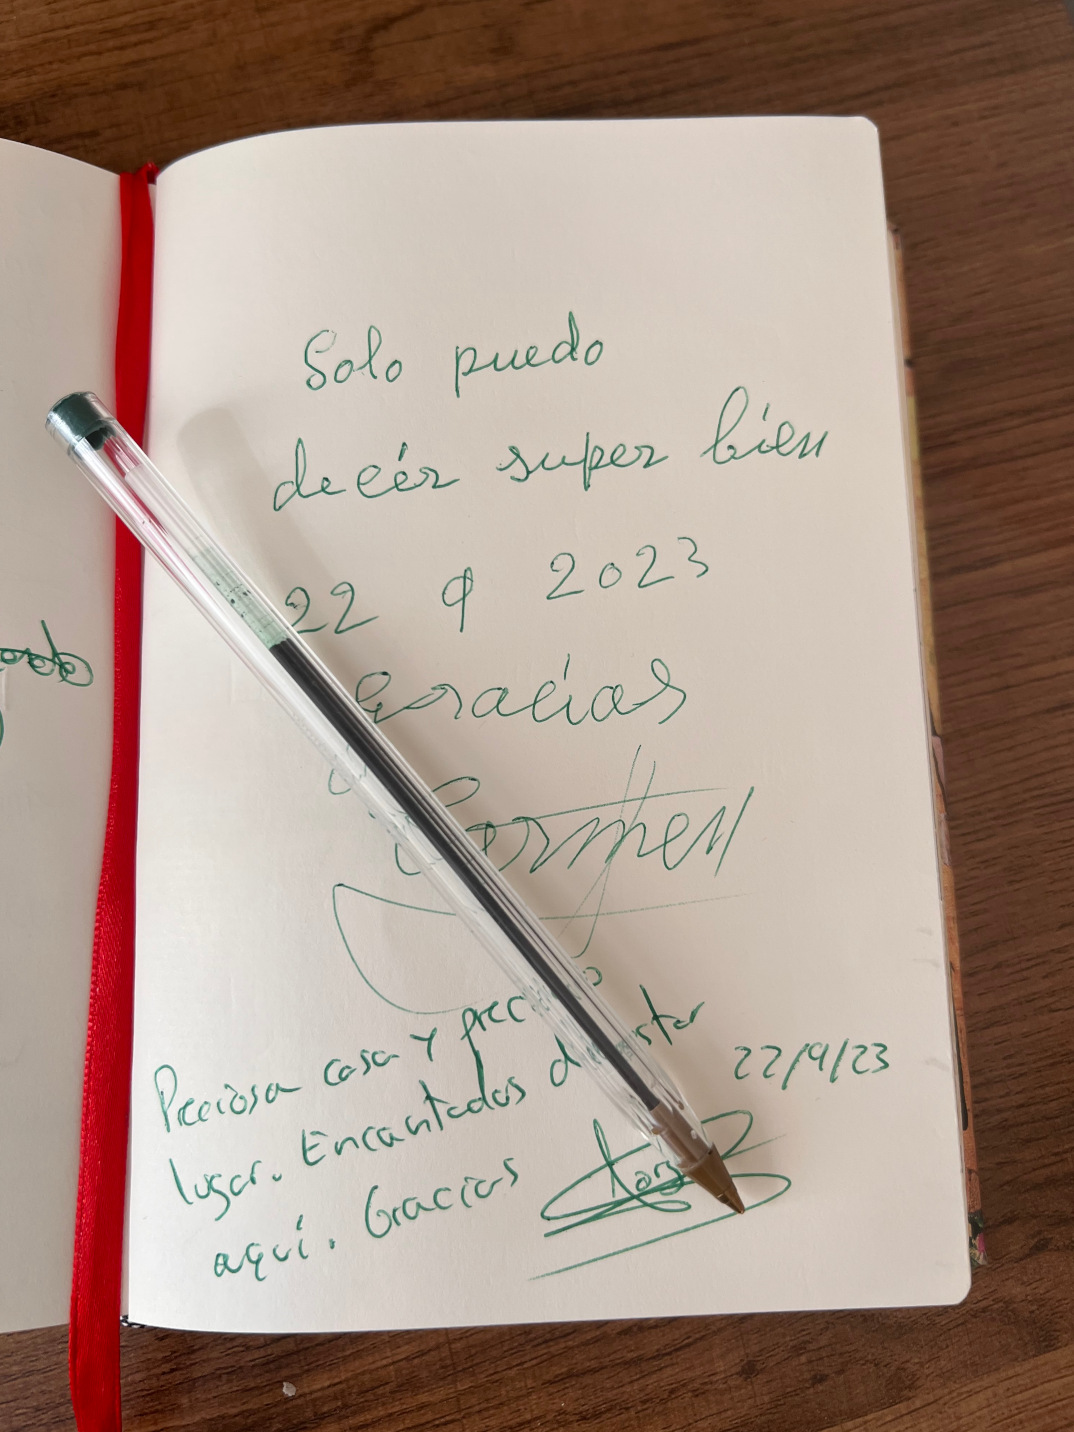 Solo puedo
decir super bien
22 9 2023
Gracias
Carmen
Preciosa casa y
lugar. Encantados
aquí. Gracias
22/9/23